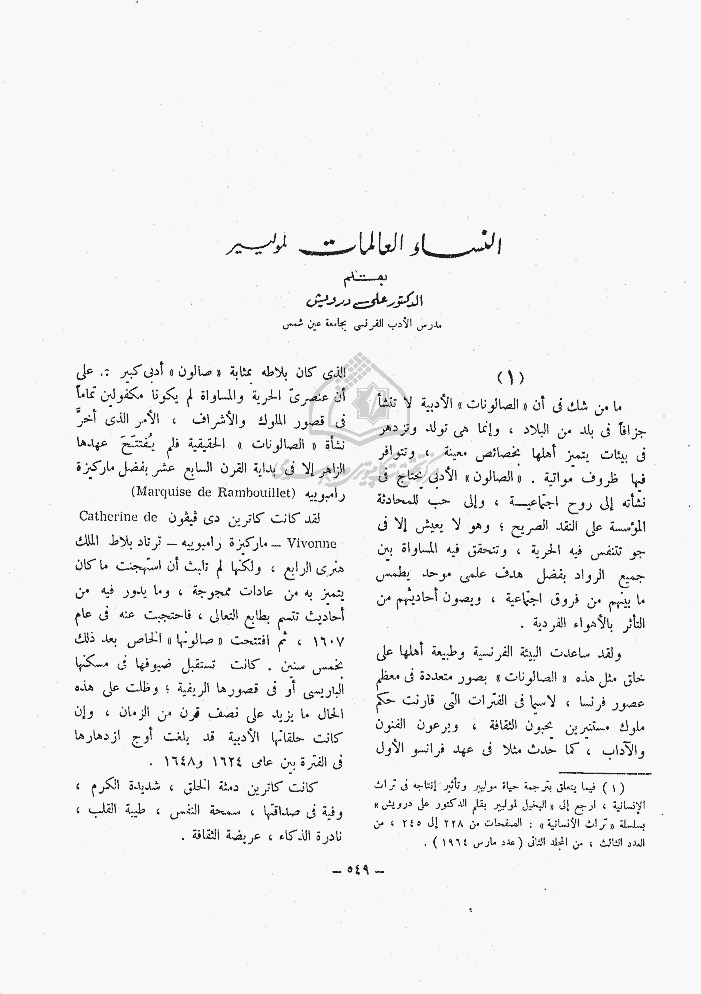 النساء العالمات لموليير
بقلم
الدكتور على درويش
مدرس الأدب الفرنسى بجامعة عين شمس
(١)
ما من شك فى أن «الصالونات» الأدبية لا تنشأ
جزافاً فى بلد من البلاد ، وإنما هى تولد وتزدهر
فى بيئات يتميز أهلها بخصائص معينة ، وتتوافر
فيها ظروف مواتية . «الصالون» الأدبى يحتاج فى
نشأته إلى روح اجتماعية ، وإلى حب للمحادثة
المؤسسة على النقد الصريح ؛ وهو لا يعيش إلا فى
جو تتنفس فيه الحرية ، وتتحقق فيه المساواة بين
جميع الرواد بفضل هدف علمى موحد يطمس
ما بينهم من فروق اجتماعية ، ويصون أحاديثهم من
التأثر بالأهواء الفردية .
ولقد ساعدت البيئة الفرنسية وطبيعة أهلها على
خلق مثل هذه «الصالونات» بصور متعددة فى معظم
عصور فرنسا ، لاسيما فى الفترات التى قارنت حكم
ملوك مستنيرين يحبون الثقافة ، ويرعون الفنون
والآداب ، كما حدث مثلا فى عهد فرانسو الأول
(١) فيما يتعلق بترجمة حياة موليير وتأثير إنتاجه فى تراث
الإنسانية ، ارجع إلى «البخيل لموليير بقلم الدكتور على درويش»
بسلسلة «تراث الأنسانية» : الصفحات من ٢٢٨ إلى ٢٤٥ ، من
العدد الثالث ، من المجلد الثانى (عدد مارس ١٩٦٤) .
الذى كان بلاطه بمثابة «صالون» أدبى كبير .. على
أن عنصرىّ الحرية والمساواة لم يكونا مكفولين تماماً
فى قصور الملوك والأشراف ، الأمر الذى أخرَّ
نشأة «الصالونات» الحقيقية فلم يُفتتَح عهدها
الزاهر إلا فى بداية القرن السابع عشر بفضل ماركيزة
رامبوييه (Marquise de Rambouillet)
لقد كانت كاترين دى فيفون Catherine de
Vivonne – ماركيزة رامبوييه – ترتاد بلاط الملك
هنرى الرابع ، ولكنها لم تلبث أن استهجنت ما كان
يتميز به من عادات ممجوجة ، وما يدور فيه من
أحاديث تتسم بطابع التعالى ، فاحتجبت عنه فى عام
١٦٠٧ ، ثم افتتحت «صالونها» الخاص بعد ذلك
بخمس سنين . كانت تستقبل ضيوفها فى مسكنها
الباريسى أو فى قصورها الريفية ؛ وظلت على هذه
الحال ما يزيد على نصف قرن من الزمان ، وإن
كانت حلقاتها الأدبية قد بلغت أوج ازدهارها
فى الفترة بين عامى ١٦٢٤ و١٦٤٨ .
كانت كاترين دمثة الخلق ، شديدة الكرم ،
وفية فى صداقتها ، سمحة النفس ، طيبة القلب ،
نادرة الذكاء ، عريضة الثقافة .
– ٥٤٩ –